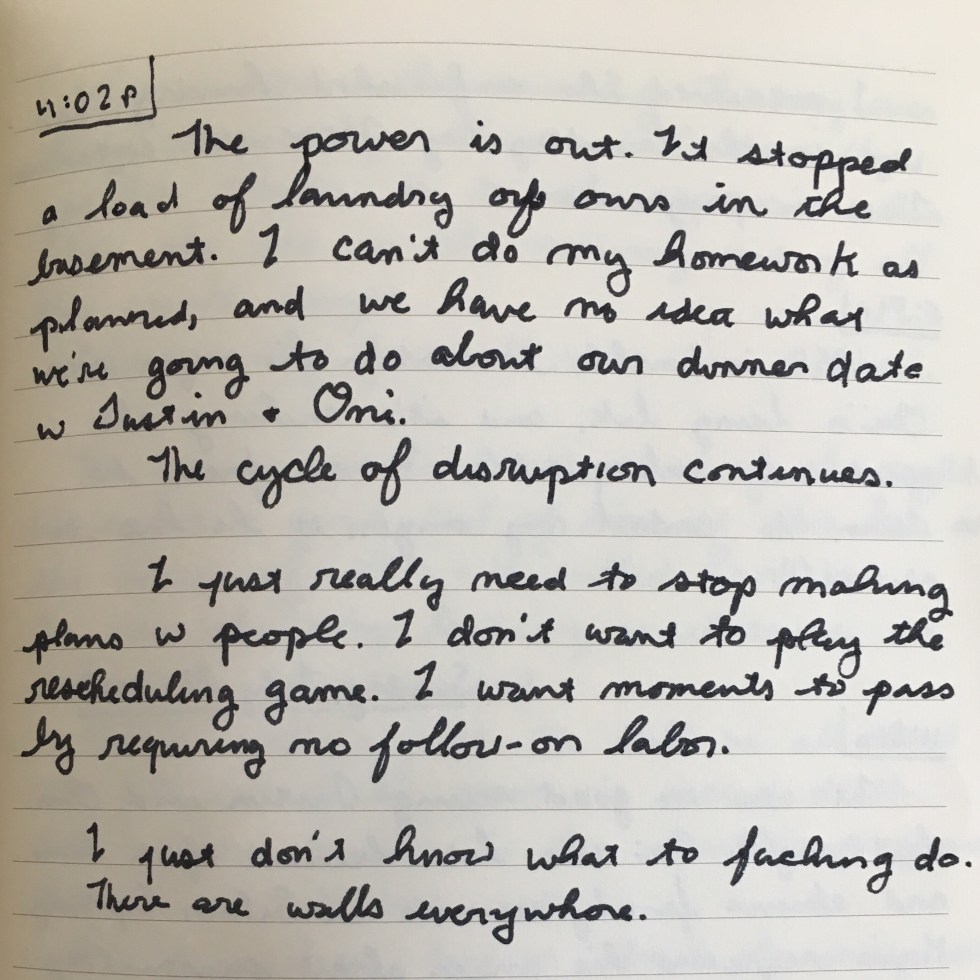 4:02P
The power is out. It stopped
a load of laundry of ours in the
basement. I can't do my homework as
planned, and we have no idea what
we're going to do about our dinner date
w Justin + Omi.
The cycle of disruption continues.
I just really need to stop making
plans w people. I don't want to play the
rescheduling game. I want moments to pass
by requiring no follow-on labor.
I just don't know what to fucking do.
There are walls everywhere.